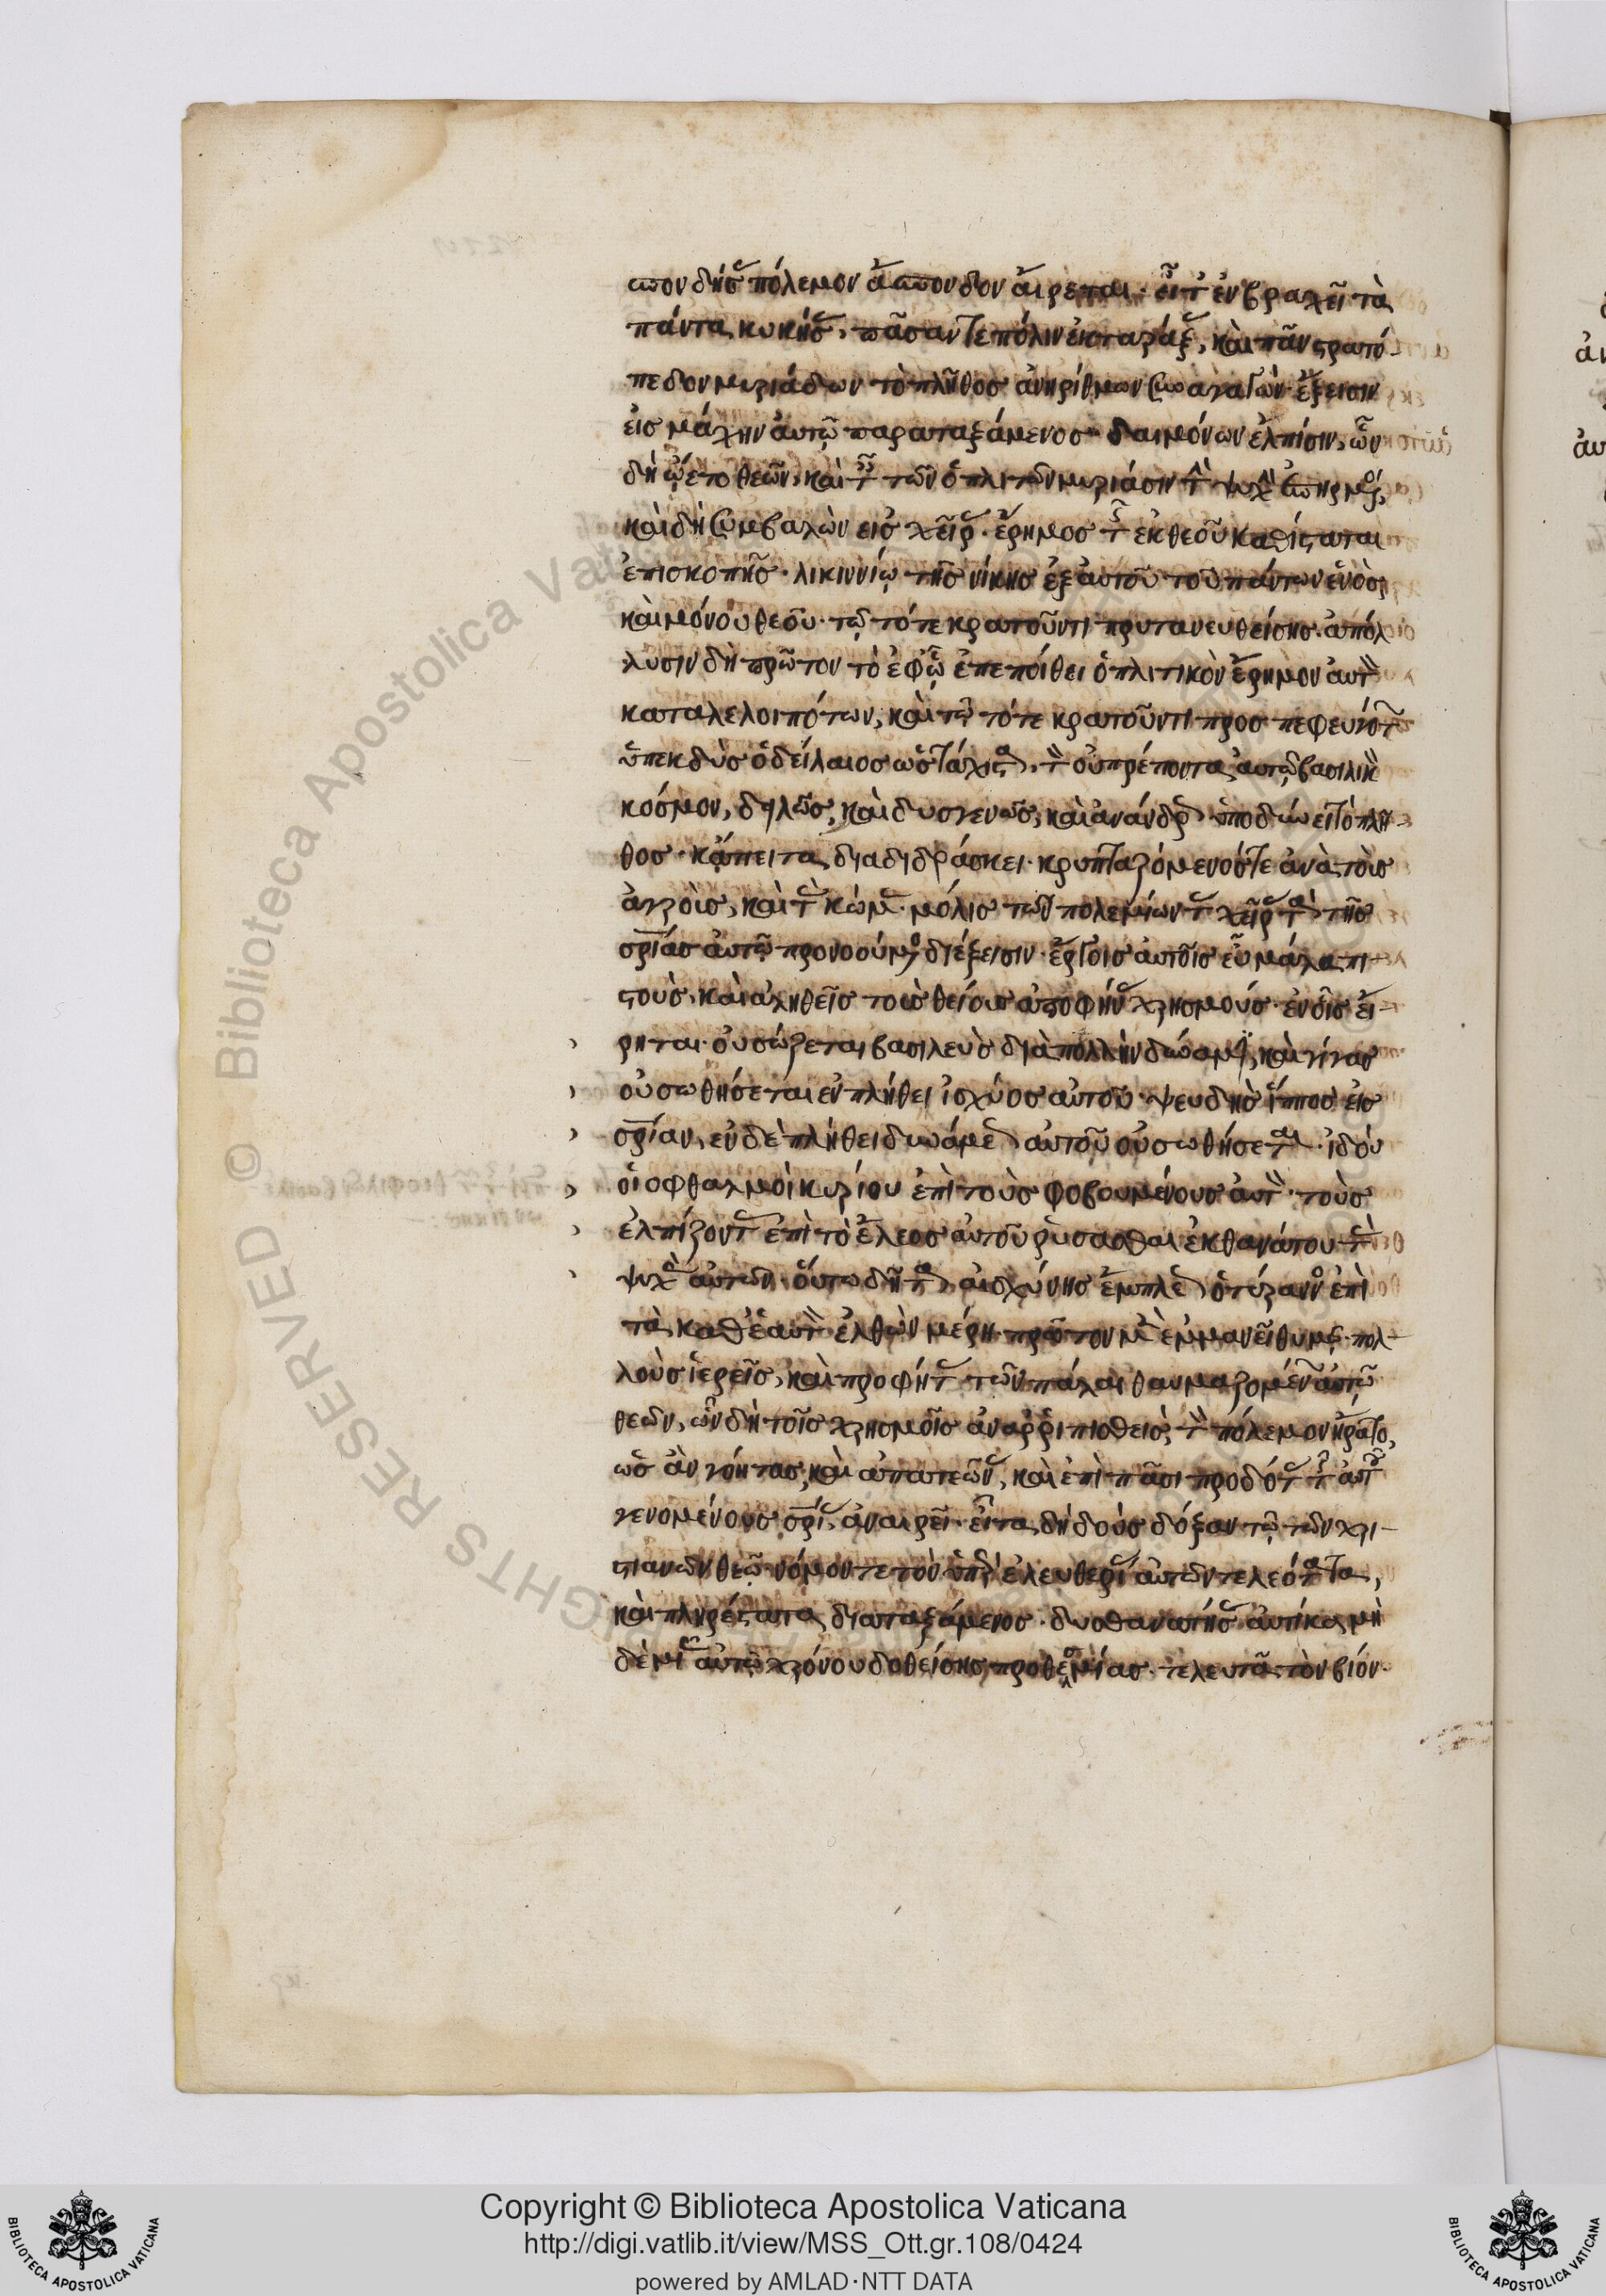 σπονδὴσ πόλεμον ἄσπονδον αἴρεται· εἶτ ἐν βραχεῖ τὰ
πάντα κυκήσ, πᾶσάν τε πόλιν ἐκταράξ, καὶ πᾶν στρατό
πεδον μυριάδων τὸ πλῆθοσ ἀνηρίθμων συναγαγὼν· ἔξεισιν
εἰσ μάχην αὐτῶ παραταξάμενοσ δαιμόνων ἐλπίσιν, ὧν
δὴ ὤετο θεῶν, καὶ τ τῶν ὁπλιτῶν μυριάσιν τ ψυχ ἐπηρμ,
καὶ δὴ συμβαλὼν εἰσ χεῖρ· ἔρημοσ τ ἐκ θεοῦ καθίσταται
ἐπισκοπῆσ· λικιννίω τῆσ νίκησ ἐξ αὐτοῦ τοῦ πάντων ἑνὸσ
καὶ μόνου θεοῦ· τῶ τότε κρατοῦντι πρυτανευθείσησ· ἀπόλ
λυσιν δὴ πρῶτον τὸ ἐφ ὧ ἐπεποίθει ὁπλιτικὸν ἔρημον αὐτ
καταλελοιπότων, καὶ τῶ τότε κρατοῦντι προσπεφευγότ
ὑπεκδὺσ ὁ δείλαιοσ ὡσ τάχιστ, τ οὐ πρέποντα αὐτῶ βασιλικ
κόσμον, δηλῶσ, καὶ δυσγενῶσ, καὶ ἀνάνδρ ὑποδύνει τὸ πλῆ
θοσ· κἄπειτα διαδιδράσκει· κρυπταζόμενόσ τε ἀνὰ τοὺσ
ἀγροὺσ, καὶ τ κώμ· μόλισ τῶν πολεμίων τ χεῖρ τ τῆσ
σρίασ αὐτῶ προνοούμ διέξεισιν· ἔργοισ αὐτοῖσ εὖ μάλα πι
στοὺσ, καὶ ἀληθεῖσ τοὺσ θείουσ ἀποφήν χρησμούσ· ἐν οἷσ εἴ
ρηται· οὐ σώζεται βασιλεὺσ διὰ πολλὴν δύναμ, καὶ γίγασ
οὐ σωθήσεται ἐν πλήθει ἰσχύοσ αὐτοῦ· ψευδὴσ ἵπποσ εἰσ
σρίαν, ἐν δὲ πλήθει δυνάμε αὐτοῦ οὐ σωθήσετ· ἰδοὺ
οἱ οφθαλμοὶ κυρίου ἐπὶ τοὺσ φοβουμένουσ αὐτ· τοὺσ
ἐλπίζοντ ἐπὶ τὸ ἔλεοσ αὐτοῦ ρύσασθαι ἐκ θανάτου τ
ψυχ αὐτῶν· οὕτω δῆτ αἰσχύνησ ἔμπλε ὁ τύρανν ἐπὶ
τὰ καθ ἑαυτ ἐλθὼν μέρη· πρῶτον μ ἐμμανεῖ θυμ· πολ
λοὺσ ἱερεῖσ, καὶ προφήτ τῶν πάλαι θαυμαζομέν αὐτῶ
θεῶν, ὧν δὴ τοῖσ χρησμοῖσ ἀναρριπισθεὶσ, τ πόλεμον ἤρατο,
ὡσ ἂν γόητασ, καὶ ἀπατεῶν, καὶ ἐπὶ πᾶσι προδότ τ αὐτ
γενομένουσ σρί, ἀναιρεῖ· εἶτα δὴ δοὺσ δόξαν τῶ τῶν χρι
στιανῶν θεῶ νόμον τε τὸν ὑπὲρ ἐλευθερί αὐτῶν τελεότατα,
καὶ πληρέστατα διαταξάμενοσ· δυσθανατήσ αὐτίκα μὴ
δὲ μι αὐτῶ χρόνου δοθείσησ προθεσμίασ· τελευτᾶ τὸν βίον·
Copyright © Biblioteca Apostolica Vaticana
http://digi.vatlib.it/view/MSS_Ott.gr.108/0424
powered by AMLAD·NTT DATA